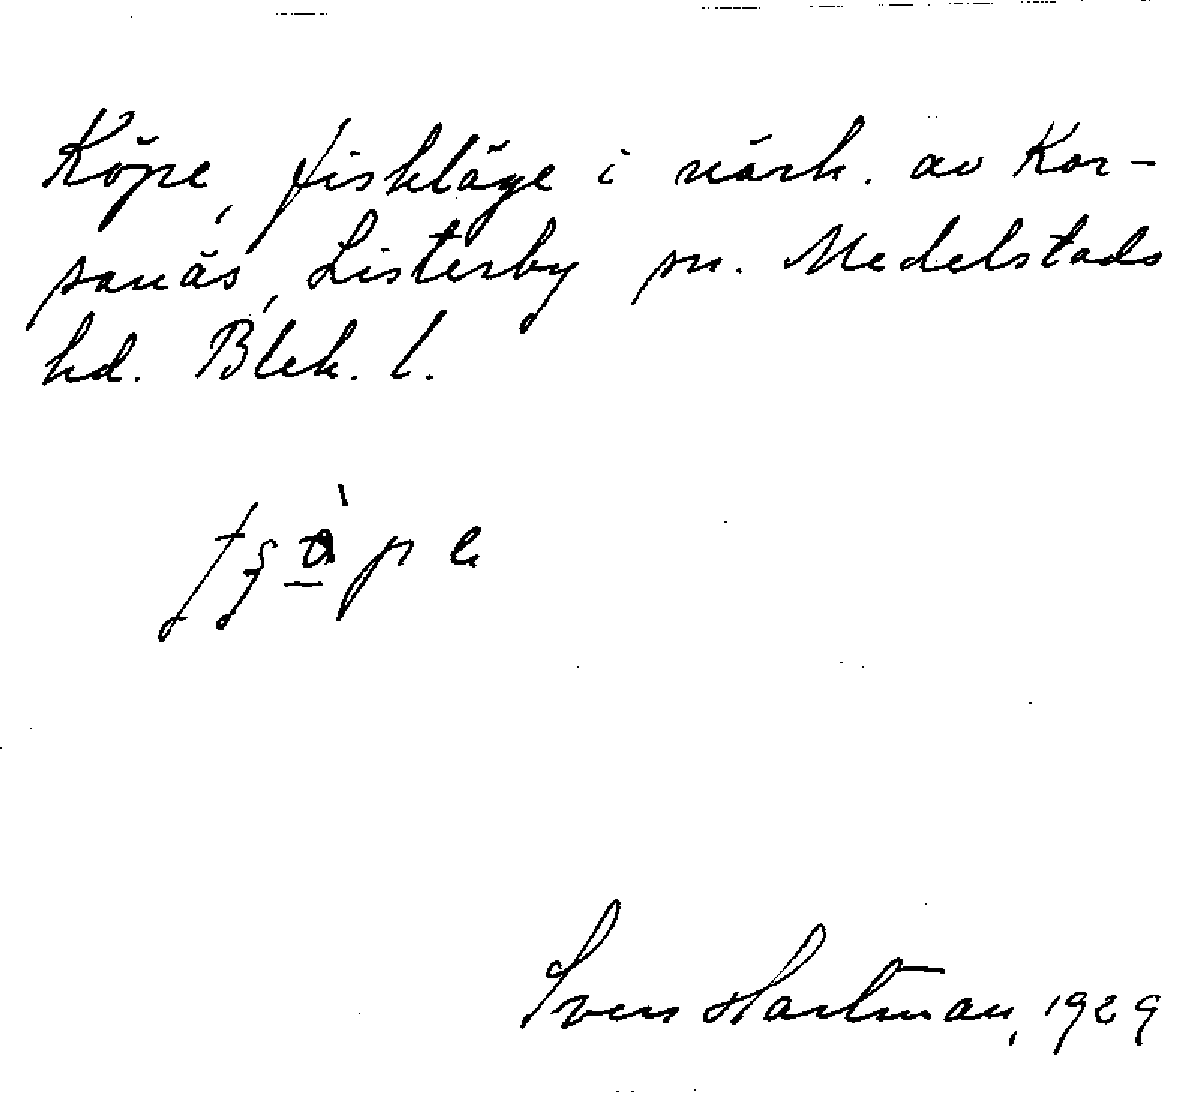 Köpe, fiskläge i närh. av Kor-
sanäs, Listerby sn. Medelstads
hd. Blek. l.
Sven Hartman, 1929